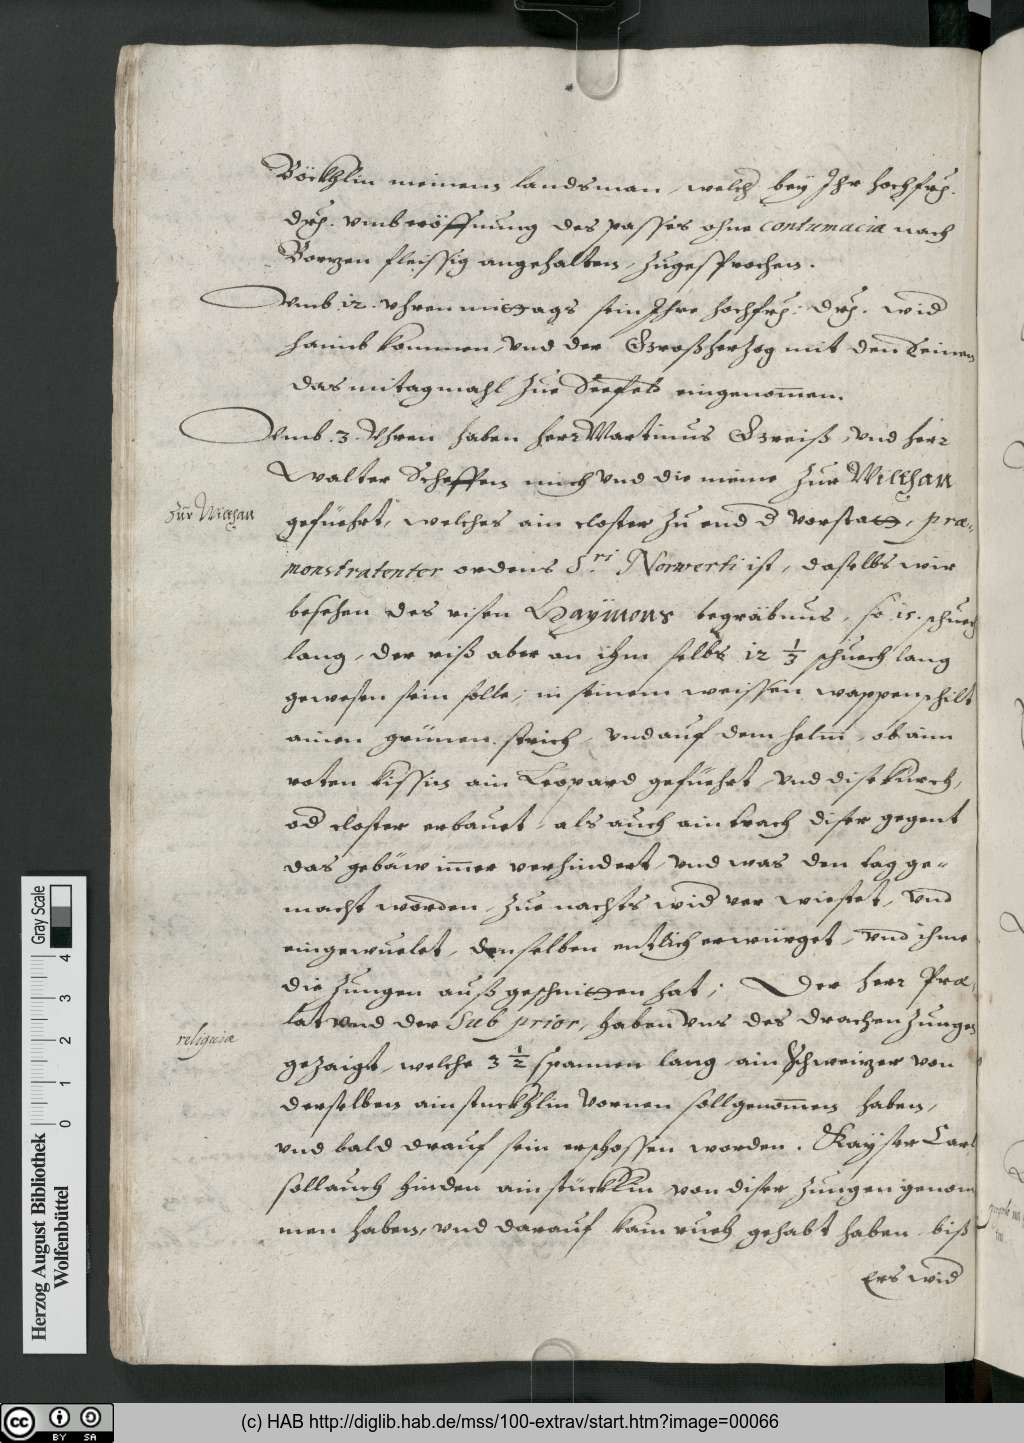 Böckhlin meinem landsman, welch bey Ihr hochfrh.
drh. vmb eröffnung des passes ohne contumacia nach
Bozen fleissig angehalten, zugesprochen.
Vmb .12. vhren mittags sein Ihre hochfrh: drh. wid
haimb kommen, vnd der Großherzog mit den Seinen
das mitagmahl zue Seefeld eingenomen.
Vmb .3. Vhren haben herr Martinus Greiß, vnd herr
Walter Scheffen mich vnd die meine zur Wilthau
zur Wilthau
gefüehrt, welches ain closter zu end d vorstatt, præ-
monstratenter ordens S.ti Norwerti ist, daselbs wir
besehen des risen Haymons begräbnus, so 15. schuech
lang, der riß aber an ihm selbs 12 1/3 schuech lang
gewesen sein solle; in seinem weissen wappenschilt
ainen grünen strich, vnd auf dem helm, ob aim
roten kissin ain Leopard gefüehrt, vnd dise kürch,
od closter erbauet, als auch ain trach diser gegent
das gebäw imer verhindert, vnd was den tag ge-
macht worden, zue nachts wid verwiestet, vnd
eingewuelet, denselben entlich erwürget, vnd ihme
die zungen außgeschnitten hat; Der herr Præ-
lat vnd der Sub prior, haben vns des drachen zungen
religuiæ
gezaigt, welche 3 1/2 spannen lang, ain Schweizer von
derselben ain stuckhlin vornen soll genomen haben,
vnd bald drauf sein erschossen worden. Kayser Carl
soll auch hinden ain stücklin von diser zungen genom
men haben, vnd darauf kain rueh gehabt haben, biß
Ers wid
Gray Scale
0 1 2 3 4
Herzog August Bibliothek
Wolfenbüttel
BY SA
(c) HAB http://diglib.hab.de/mss/100-extrav/start.htm?image=00066